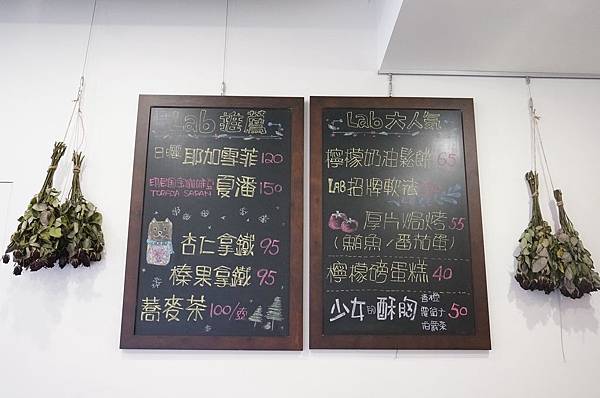 Lab 推薦
日曬 耶加雪菲 120
TORAJA SAPAN 夏潘 150
杏仁拿鐵 95
榛果拿鐵 95
蕎麥茶 100/壺
Lab 大人氣
檸檬奶油鬆餅 65
LAB招牌軟法
厚片焗烤 55
(鮪魚/番茄蛋)
檸檬磅蛋糕 40
少女的酥胸 香橙 50